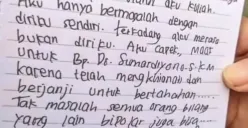 aku kuliah.
Aku hanya bermasalah dengan
diriku sendiri. Terkadang aku merasa
bukan diriku. Aku capek, maaf
untuk Bp. Ds. Sumardiyono. S.K.M
karena telah mengkhianati dan
berjanji untuk bertahan.....
Tak masalah semua orang bilang
yang lain bipolar juga bisa...